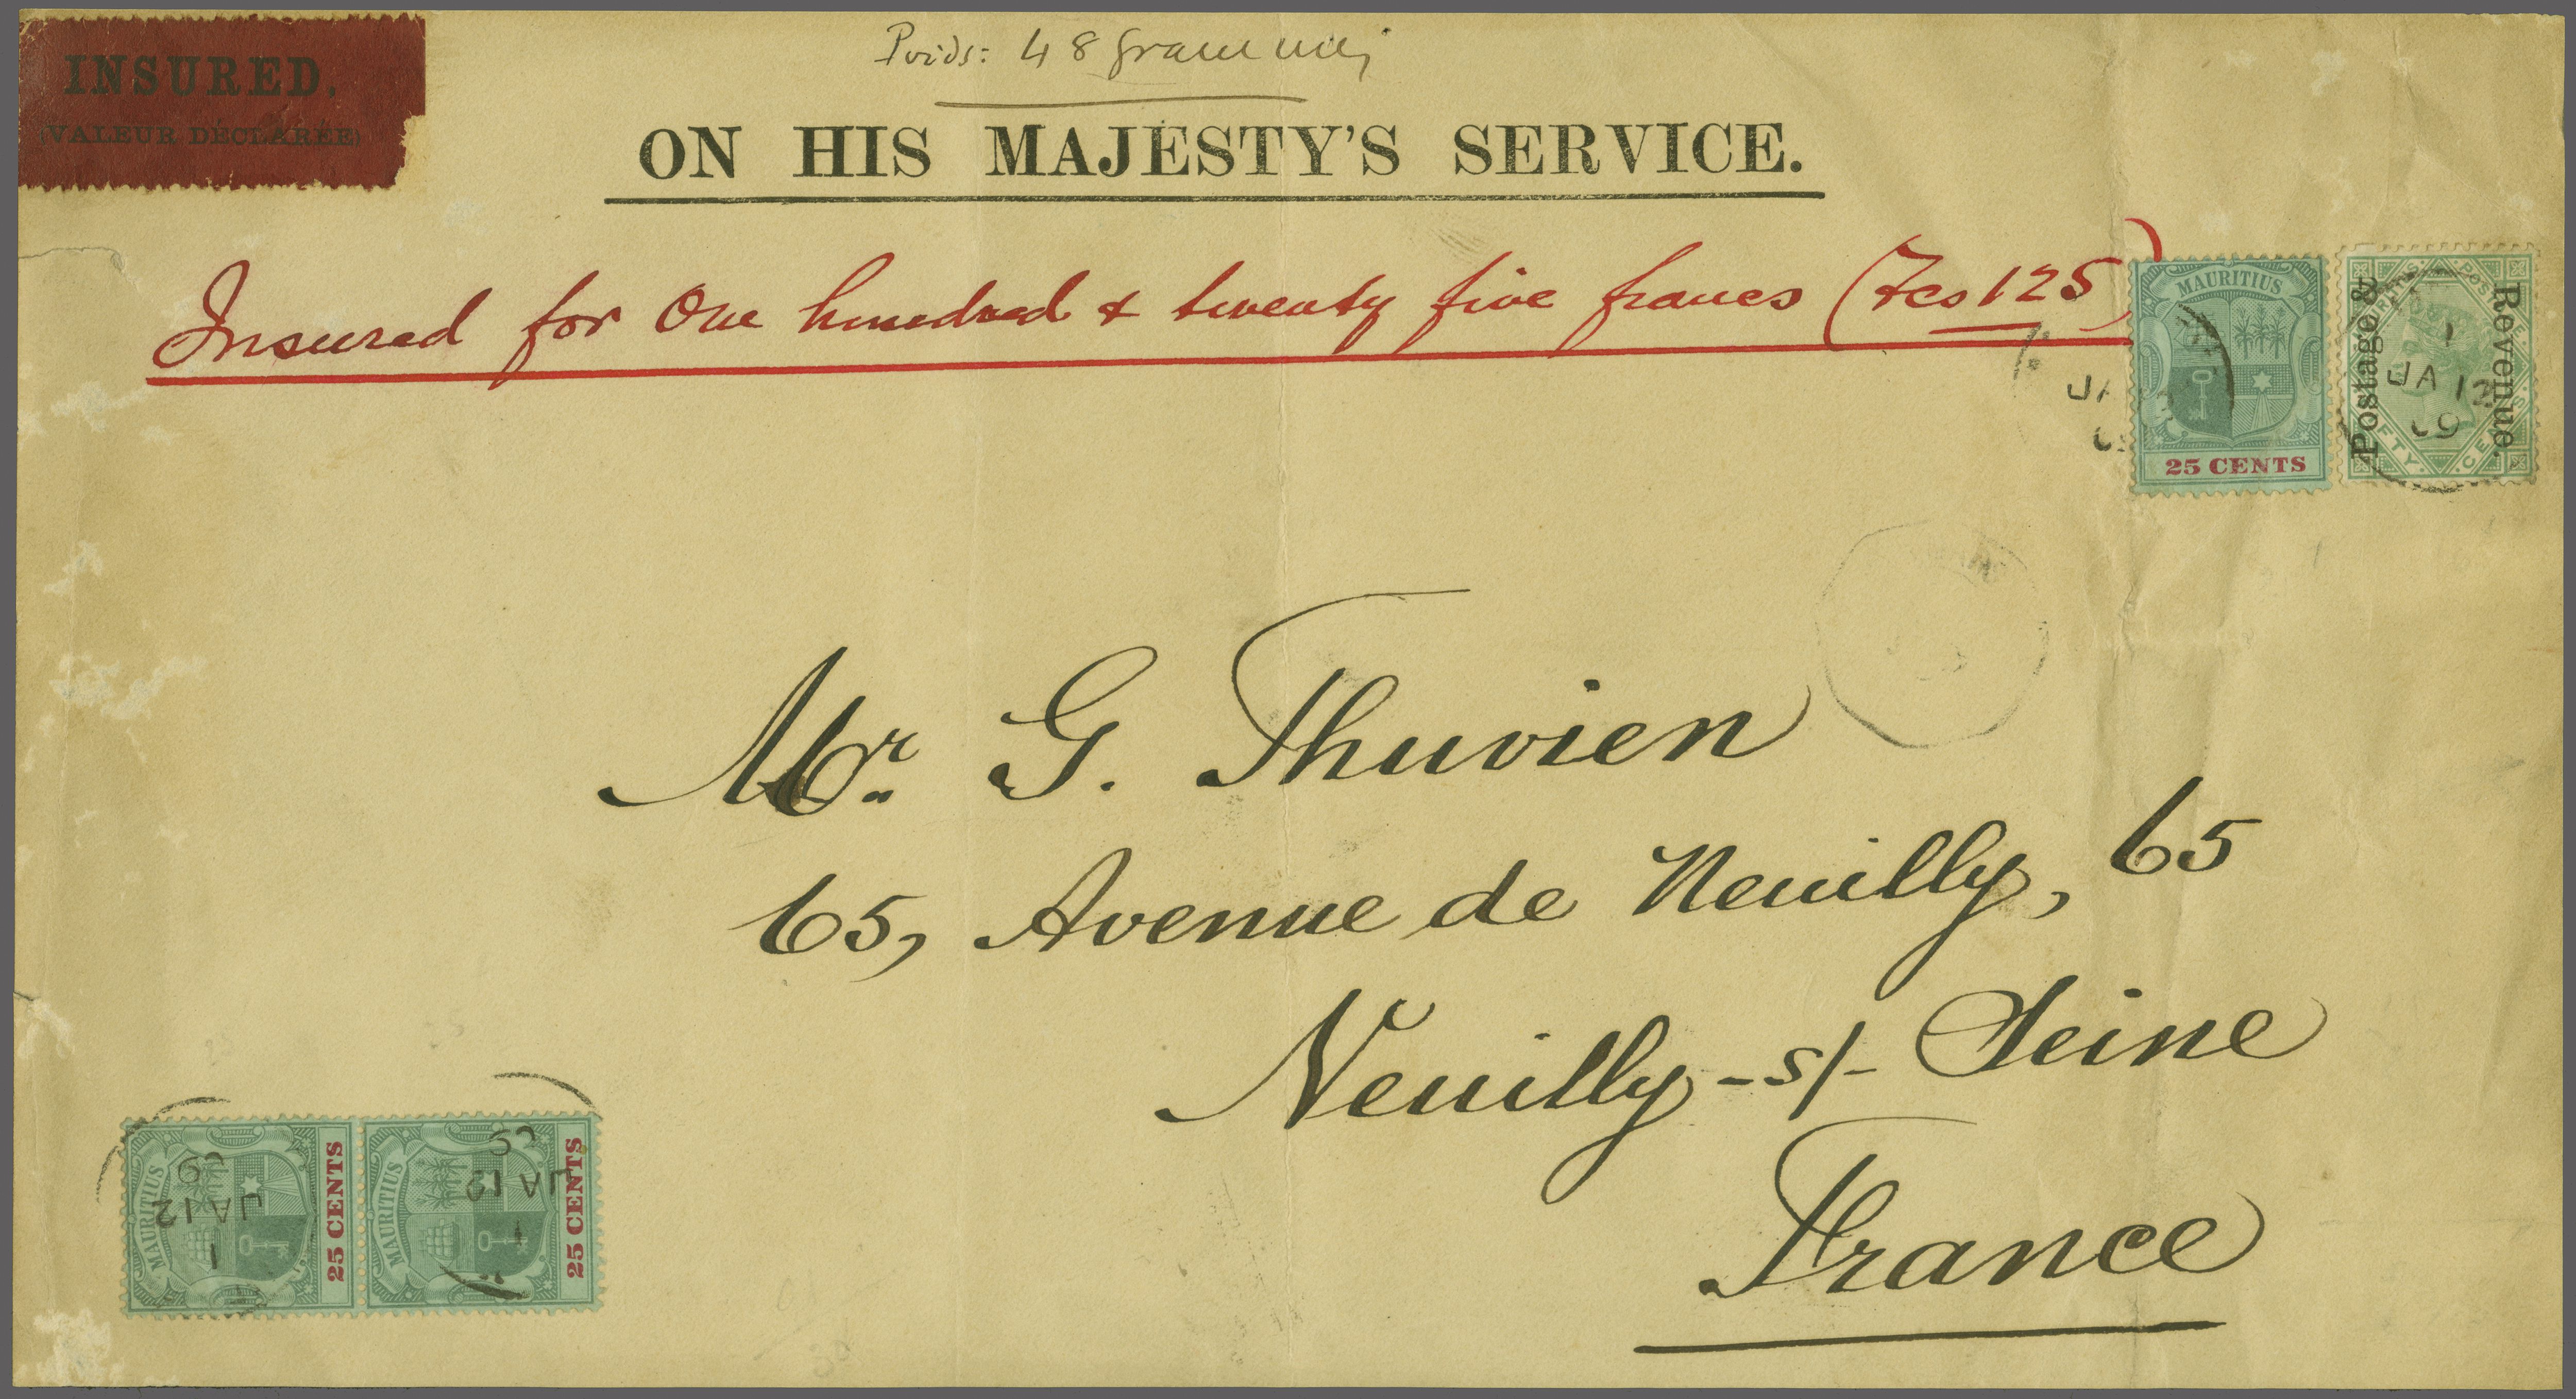 INSURED.
(VALEUR DÉCLARÉE)
Poids: 48 grammes
ON HIS MAJESTY'S SERVICE.
Insured for One hundred & twenty five francs (Fcs 125)
MAURITIUS
25 CENTS
Postage &
Revenue.
1
JA 12
09
Mr. G. Thuvien
65, Avenue de Neuilly, 65
Neuilly -s/- Seine
France
MAURITIUS
25 CENTS
1
JA 12
09
MAURITIUS
25 CENTS
1
JA 12
09